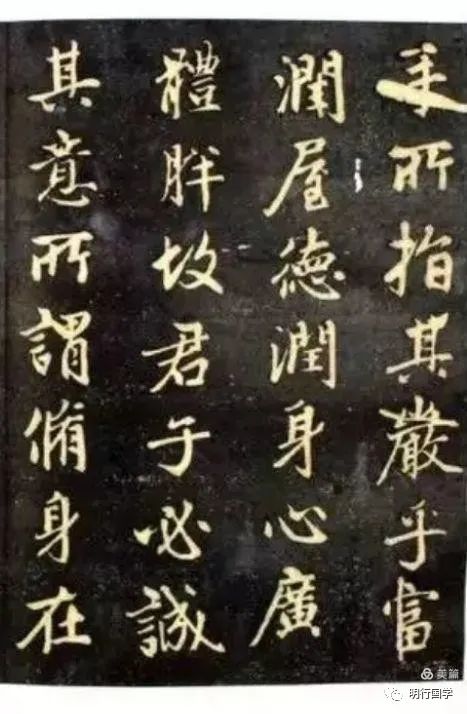 手所指其嚴乎富
潤屋德潤身心廣
體胖故君子必誠
其意所謂脩身在
美篇
明行国学